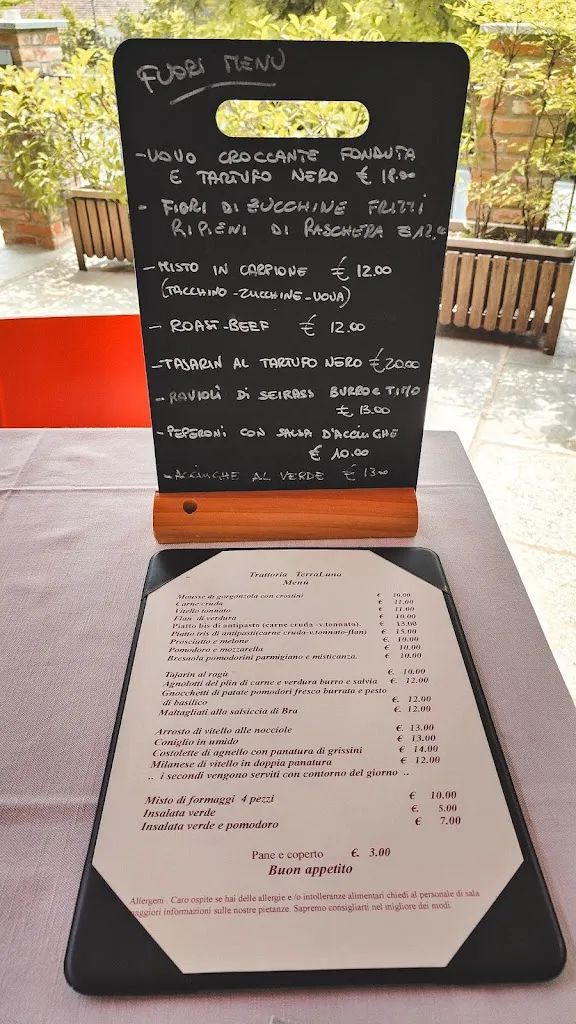 FUORI MENÙ
- UOVO CROCCANTE FONDUTA
E TARTUFO NERO € 18.00
- FIORI DI ZUCCHINE FRITTI
RIPIENI DI RASCHERA € 12.
- MISTO IN CARPIONE € 12.00
(TACCHINO - ZUCCHINE - UOVA)
- ROAST-BEEF € 12.00
- TAJARIN AL TARTUFO NERO €20.00
- RAVIOLI DI SEIRASS BURRO E TIMO
€ 13.00
- PEPERONI CON SALSA D'ACCIUGHE
€ 10.00
- ACCIUGHE AL VERDE € 13.00
Trattoria TerraLuna
Menù
Mousse di gorgonzola con crostini € 10.00
Carne cruda € 11.00
Vitello tonnato € 11.00
Flan di verdura € 10.00
Piatto bis di antipasto (carne cruda -v.tonnato). € 13.00
Piatto tris di antipasti(carne cruda-v.tonnato-flan) € 15.00
Prosciutto e melone € 10.00
Pomodoro e mozzarella € 10.00
Bresaola pomodorini parmigiano e misticanza. € 10.00
Tajarin al ragù € 10.00
Agnolotti del plin di carne e verdura burro e salvia €. 12.00
Gnocchetti di patate pomodori fresco burrata e pesto
di basilico €. 12.00
Maltagliati alla salsiccia di Bra €. 12.00
Arrosto di vitello alle nocciole €. 13.00
Coniglio in umido € 13.00
Costolette di agnello con panatura di grissini € 14.00
Milanese di vitello in doppia panatura € 12.00
.. i secondi vengono serviti con contorno del giorno ..
Misto di formaggi 4 pezzi € 10.00
Insalata verde € 5.00
Insalata verde e pomodoro € 7.00
Pane e coperto €. 3.00
Buon appetito
Allergeni . Caro ospite se hai delle allergie e /o intolleranze alimentari chiedi al personale di sala
maggiori informazioni sulle nostre pietanze. Sapremo consigliarti nel migliore dei modi.